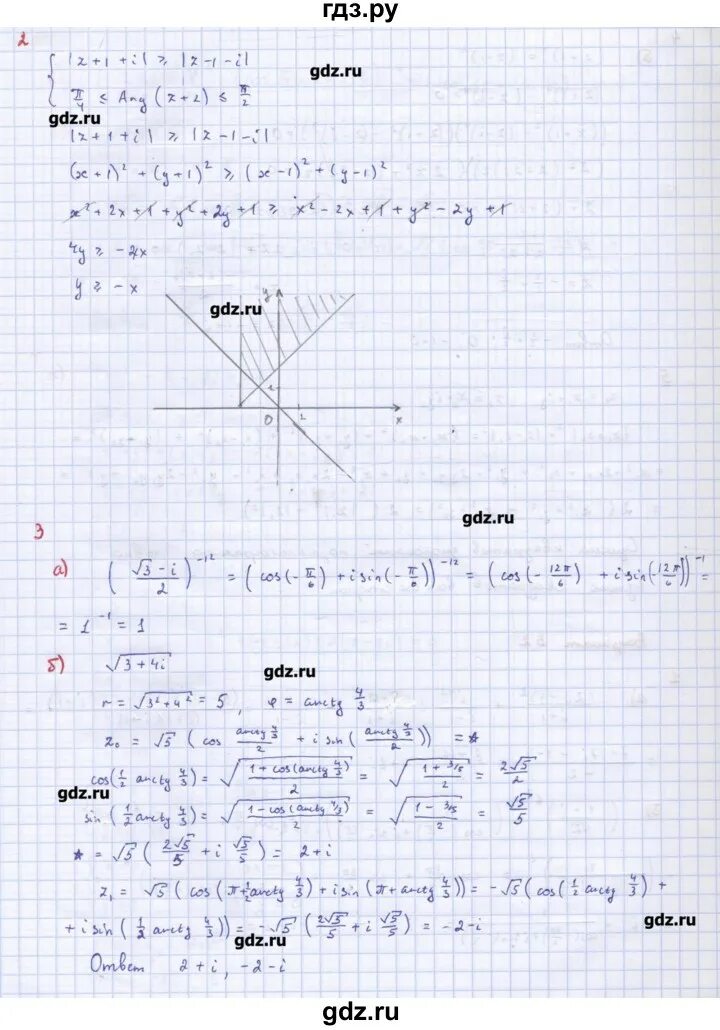 гдз.ру
2
{ |z+1+i| ⩾ |z-1-i|
gdz.ru
π/4 ≤ Arg (z+2) ≤ π/2
gdz.ru
|z+1+i| ⩾ |z-1-i|
(x+1)² + (y+1)² ⩾ (x-1)² + (y-1)²
x² + 2x + 1 + y² + 2y + 1 ⩾ x² - 2x + 1 + y² - 2y + 1
4y ⩾ -4x
y ⩾ -x
y
gdz.ru
1
0 1 x
gdz.ru
3
а) ((√3 - i)/2)^-12 = (cos(-π/6) + i sin(-π/6))^-12 = (cos(-12π/6) + i sin(-12π/6))^-1 =
= 1^-1 = 1
б) √(3+4i)
gdz.ru
r = √(3²+4²) = 5, φ = arctg 4/3
z₀ = √5 (cos (arctg 4/3)/2 + i sin((arctg 4/3)/2)) = *
cos(1/2 arctg 4/3) = √((1+cos(arctg 4/3))/2) = √((1+3/5)/2) = 2√5/2
gdz.ru
sin(1/2 arctg 4/3) = √((1-cos(arctg 4/3))/2) = √((1-3/5)/2) = √5/5
* = √5 (2√5/5 + i √5/5) = 2+i
z₁ = √5 (cos(π+1/2 arctg 4/3) + i sin(π+arctg 4/3)) = -√5 (cos(1/2 arctg 4/3) +
+ i sin(1/2 arctg 4/3)) = -√5 (2√5/5 + i √5/5) = -2-i
gdz.ru
gdz.ru
Ответ 2+i, -2-i
gdz.ru